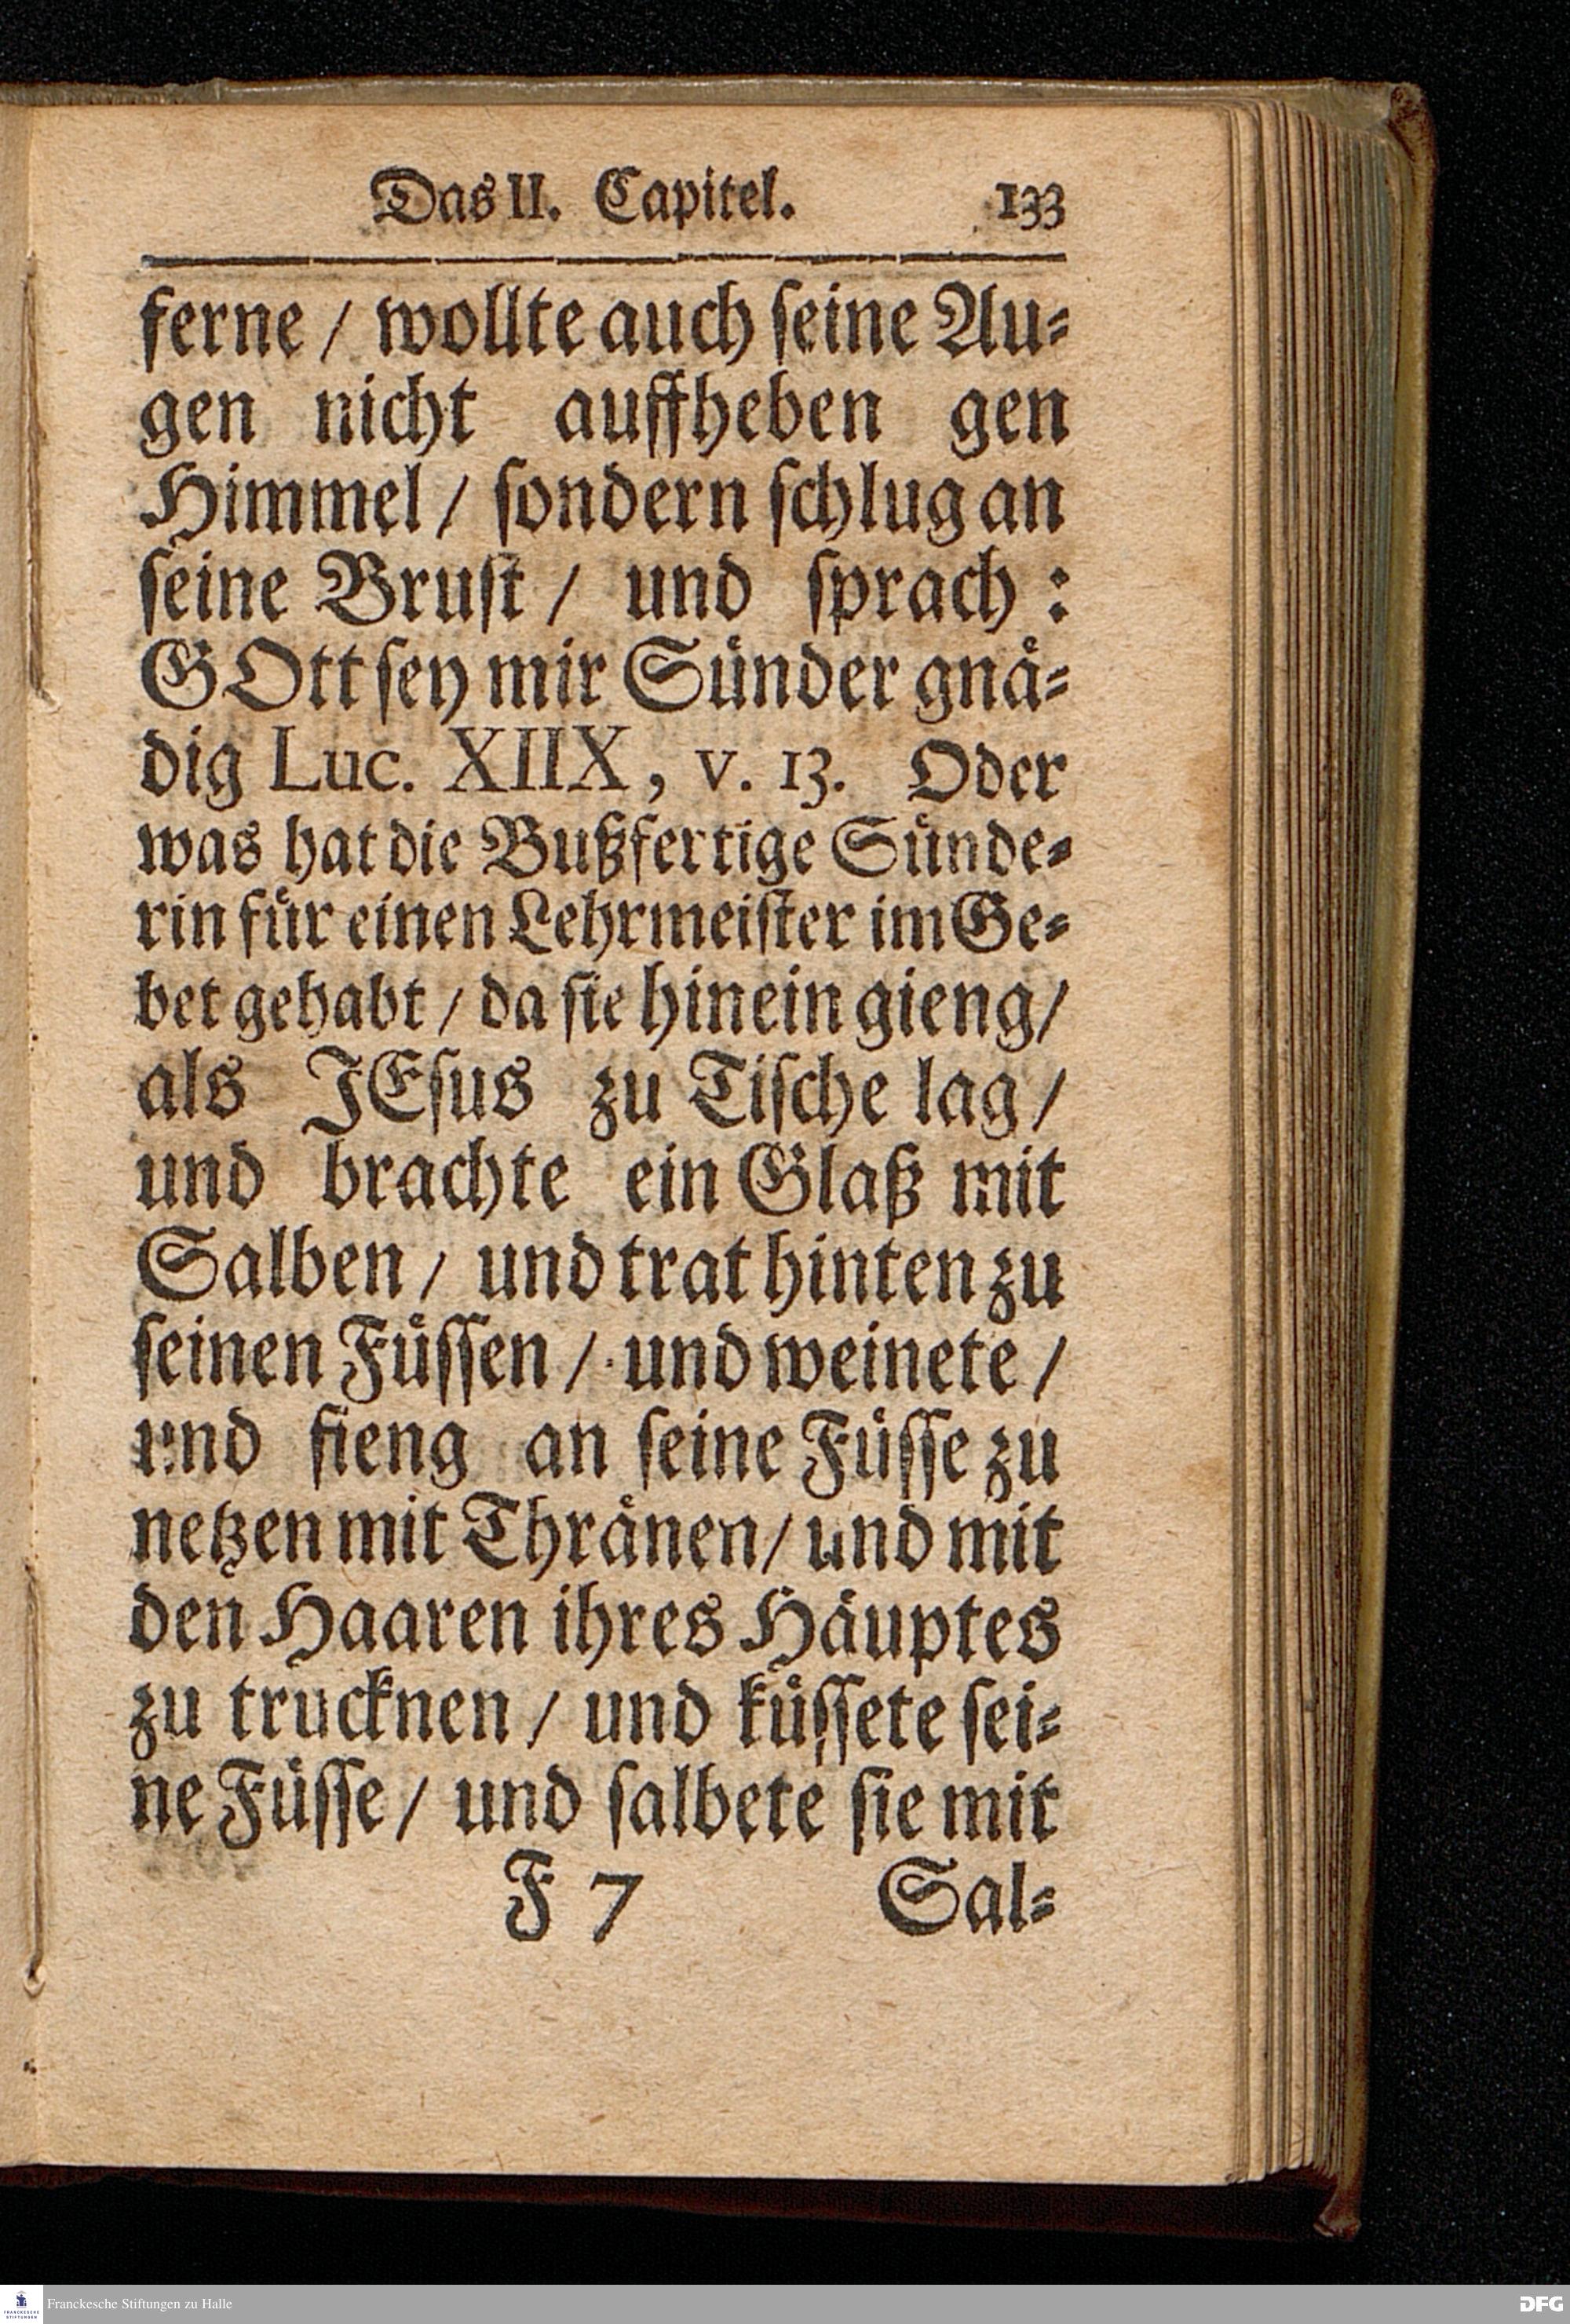 Das II. Capitel. 133
ferne / wollte auch ſeine Au⸗
gen nicht auffheben gen
Himmel / ſondern ſchlug an
ſeine Bruſt / und ſprach :
GOtt ſey mir Suͤnder gnaͤ⸗
dig Luc. XIIX, v. 13. Oder
was hat die Bußfertige Suͤnde⸗
rin fuͤr einen Lehrmeiſter im Ge⸗
bet gehabt / da ſie hinein gieng /
als JEſus zu Tiſche lag /
und brachte ein Glaß mit
Salben / und trat hinten zu
ſeinen Fuͤſſen / und weinete /
und fieng an ſeine Fuͤſſe zu
netzen mit Thraͤnen / und mit
den Haaren ihres Haͤuptes
zu trucknen / und kuͤſſete ſei⸗
ne Fuͤſſe / und ſalbete ſie mit
F 7 Sal⸗
FRANCKESCHE
STIFTUNGEN
Franckesche Stiftungen zu Halle
DFG